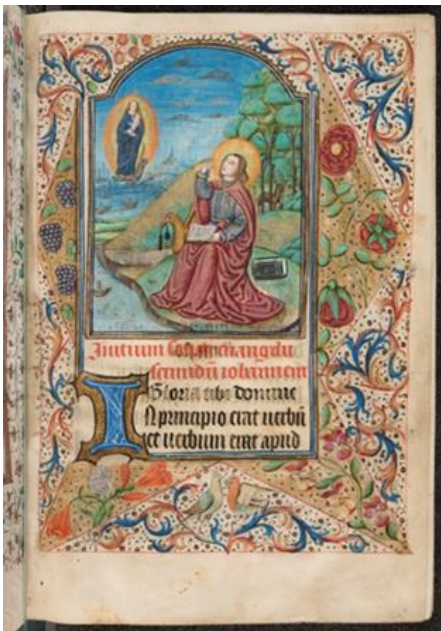 Initium euangelii
secundū iohannem
Gloria tibi domine
IN principio erat uerbū
et uerbum erat apud